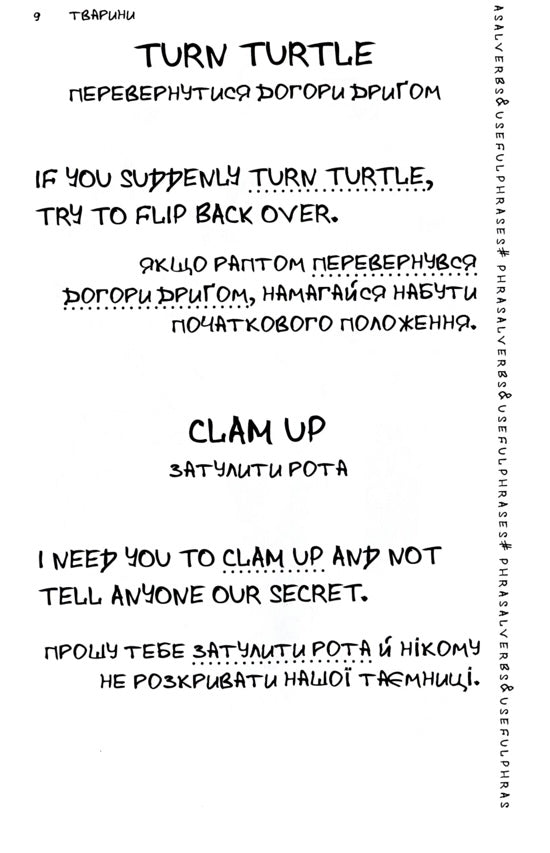 9 ТВАРИНИ
TURN TURTLE
ПЕРЕВЕРНУТИСЯ ДОГОРИ ДРИҐОМ
IF YOU SUDDENLY TURN TURTLE,
TRY TO FLIP BACK OVER.
ЯКЩО РАПТОМ ПЕРЕВЕРНУВСЯ
ДОГОРИ ДРИҐОМ, НАМАГАЙСЯ НАБУТИ
ПОЧАТКОВОГО ПОЛОЖЕННЯ.
CLAM UP
ЗАТУЛИТИ РОТА
I NEED YOU TO CLAM UP AND NOT
TELL ANYONE OUR SECRET.
ПРОШУ ТЕБЕ ЗАТУЛИТИ РОТА Й НІКОМУ
НЕ РОЗКРИВАТИ НАШОЇ ТАЄМНИЦІ.
ASALVERBS&USEFULPHRASES# PHRASALVERBS&USEFULPHRASES# PHRASALVERBS&USEFULPHRAS